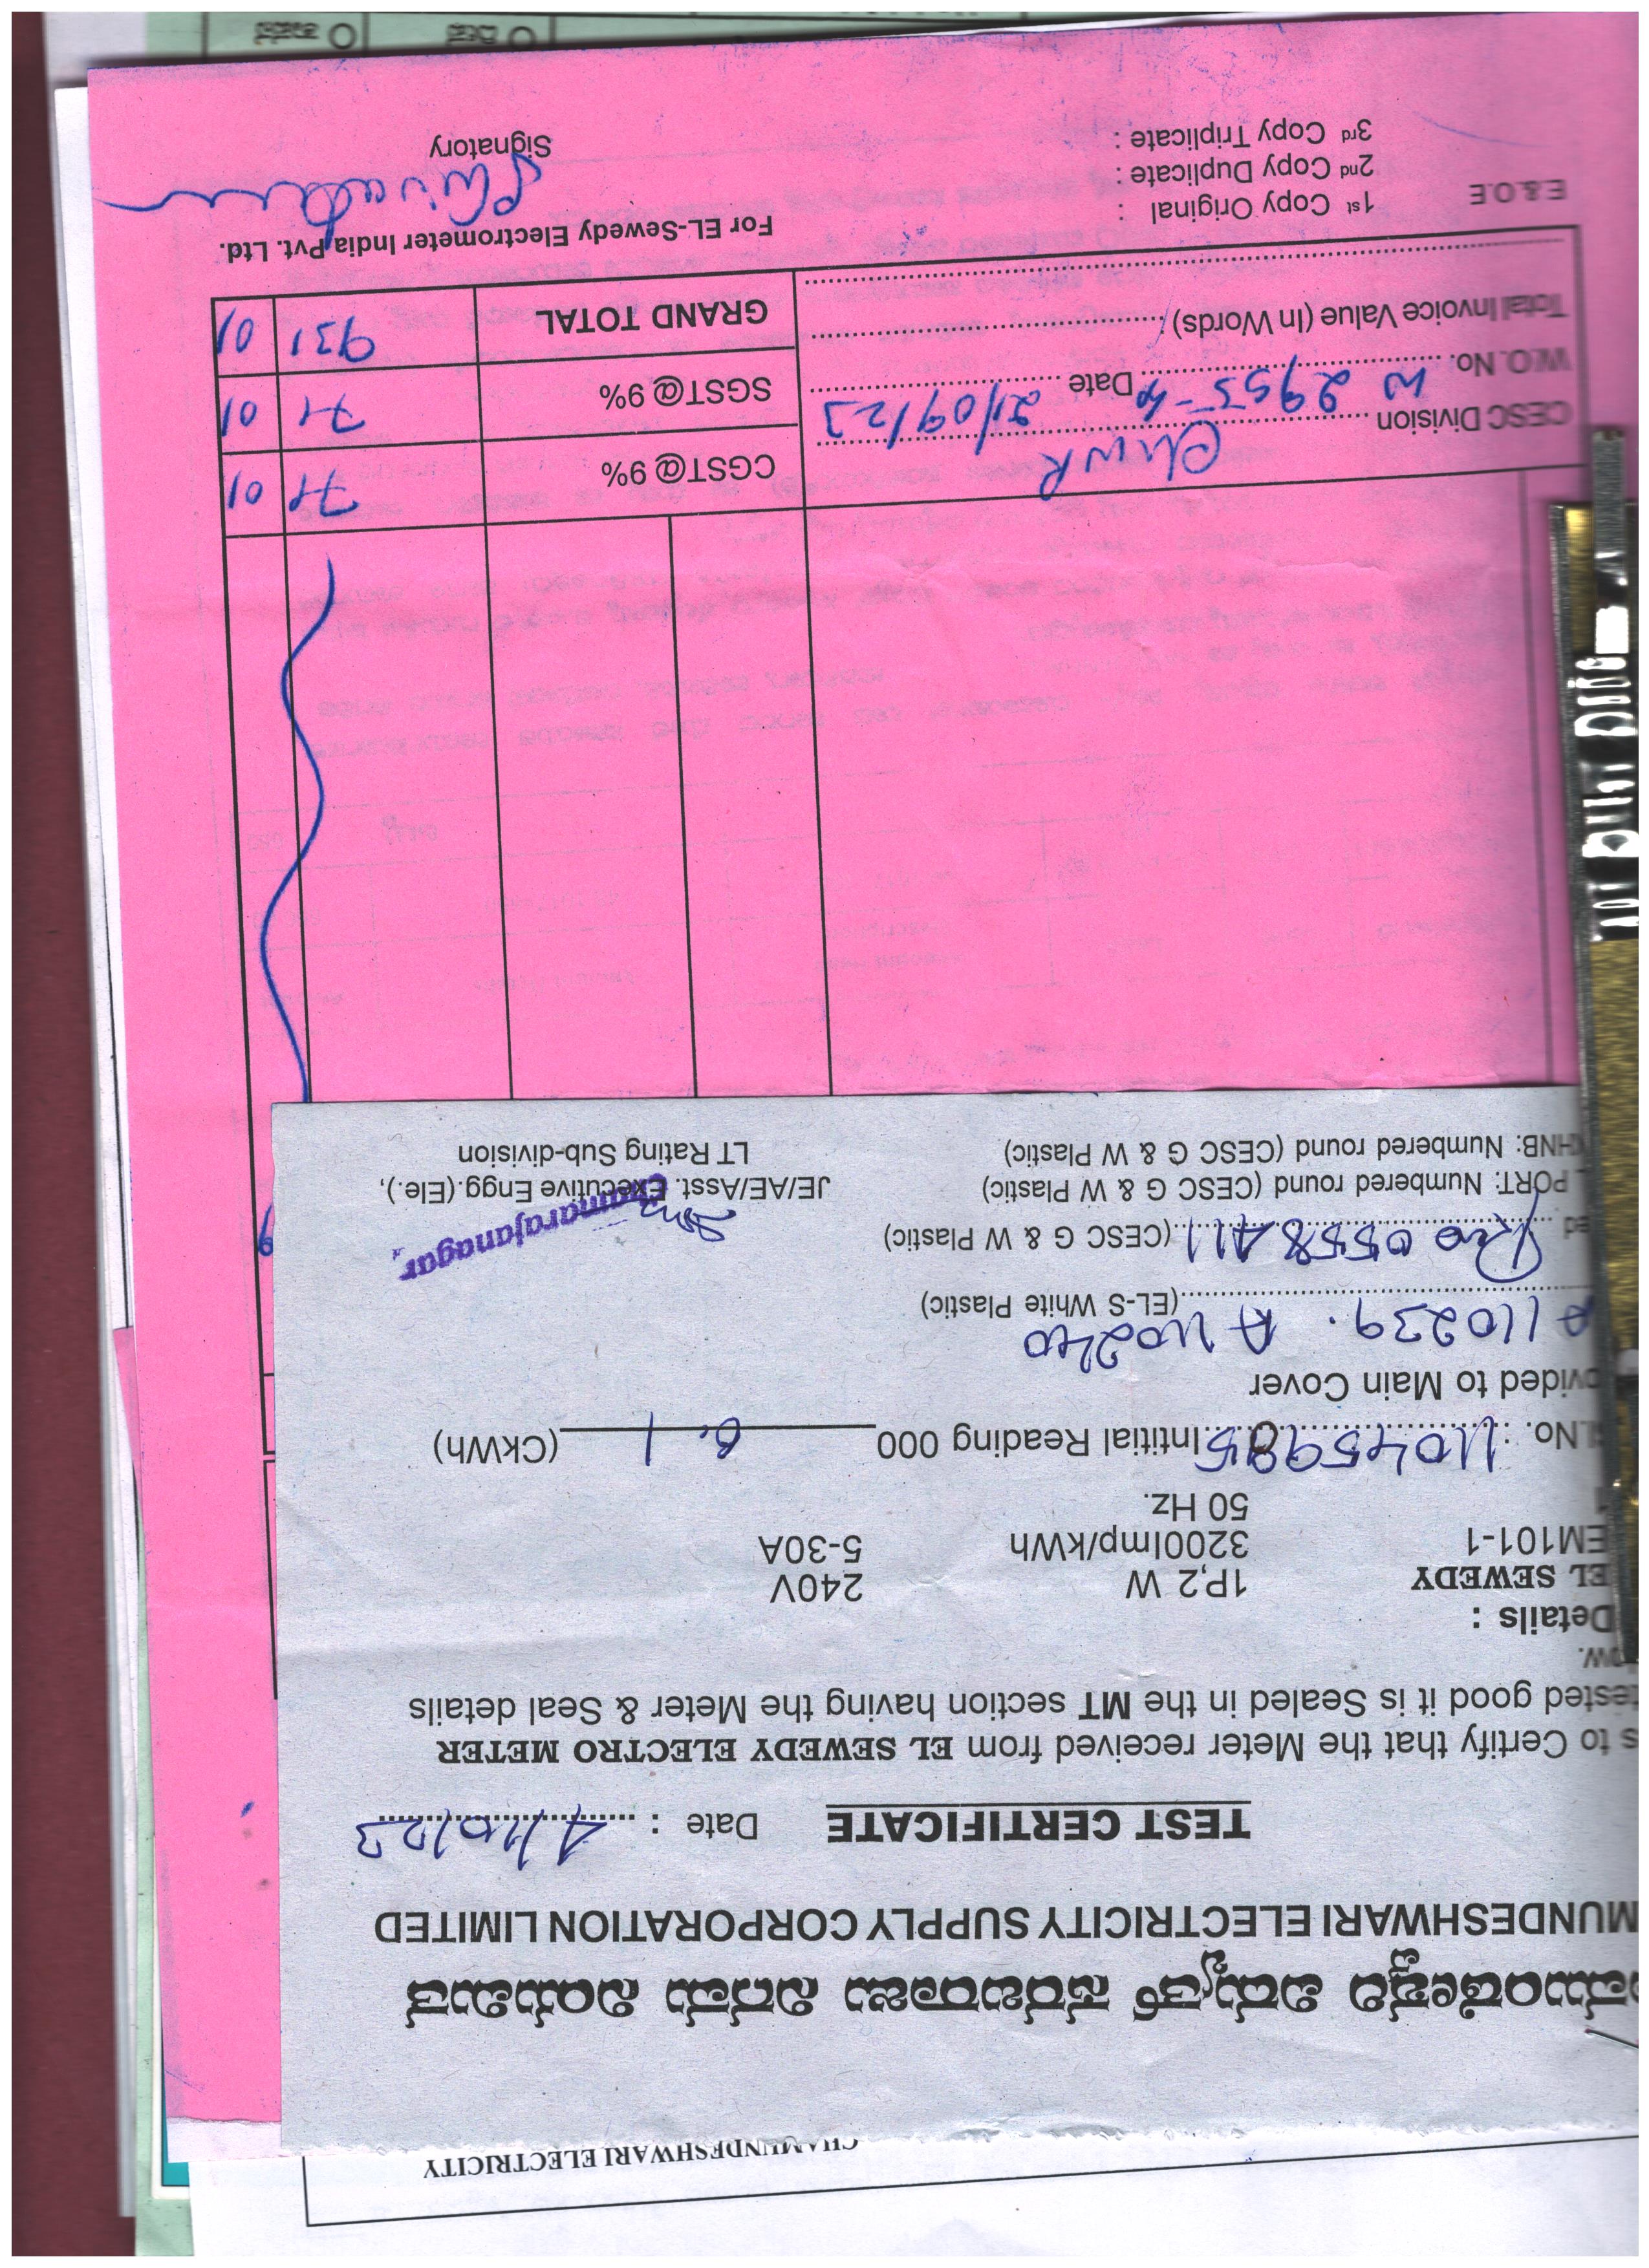 CHAMUNDESHWARI ELECTRICITY
ವಿದ್ಯುತ್ ಸರಬರಾಜು ನಿಗಮ ನಿಯಮಿತ
MUNDESHWARI ELECTRICITY SUPPLY CORPORATION LIMITED
TEST CERTIFICATE Date : 4/10/23
s to Certify that the Meter received from EL SEWEDY ELECTRO METER
tested good it is Sealed in the MT section having the Meter & Seal details
ow.
Details :
EL SEWEDY 1P,2 W 240V
EM101-1 3200Imp/kWh 5-30A
50 Hz.
No. : 11045985 Intitial Reading 000 0.1 (CkWh)
ovided to Main Cover
A 110239. A 110240 (EL-S White Plastic)
ed 0558411 (CESC G & W Plastic)
PORT: Numbered round (CESC G & W Plastic)
HNB: Numbered round (CESC G & W Plastic)
JE/AE/Asst. Executive Engg.(Ele.),
Chamarajanagar
LT Rating Sub-division
CGST@ 9% 71 01
SGST@ 9% 71 01
GRAND TOTAL 931 01
CESC Division
W.O. No. Date 21/09/23
Total Invoice Value (In Words)
E.& O.E
1st Copy Original :
2nd Copy Duplicate :
3rd Copy Triplicate :
For EL-Sewedy Electrometer India Pvt. Ltd.
Signatory